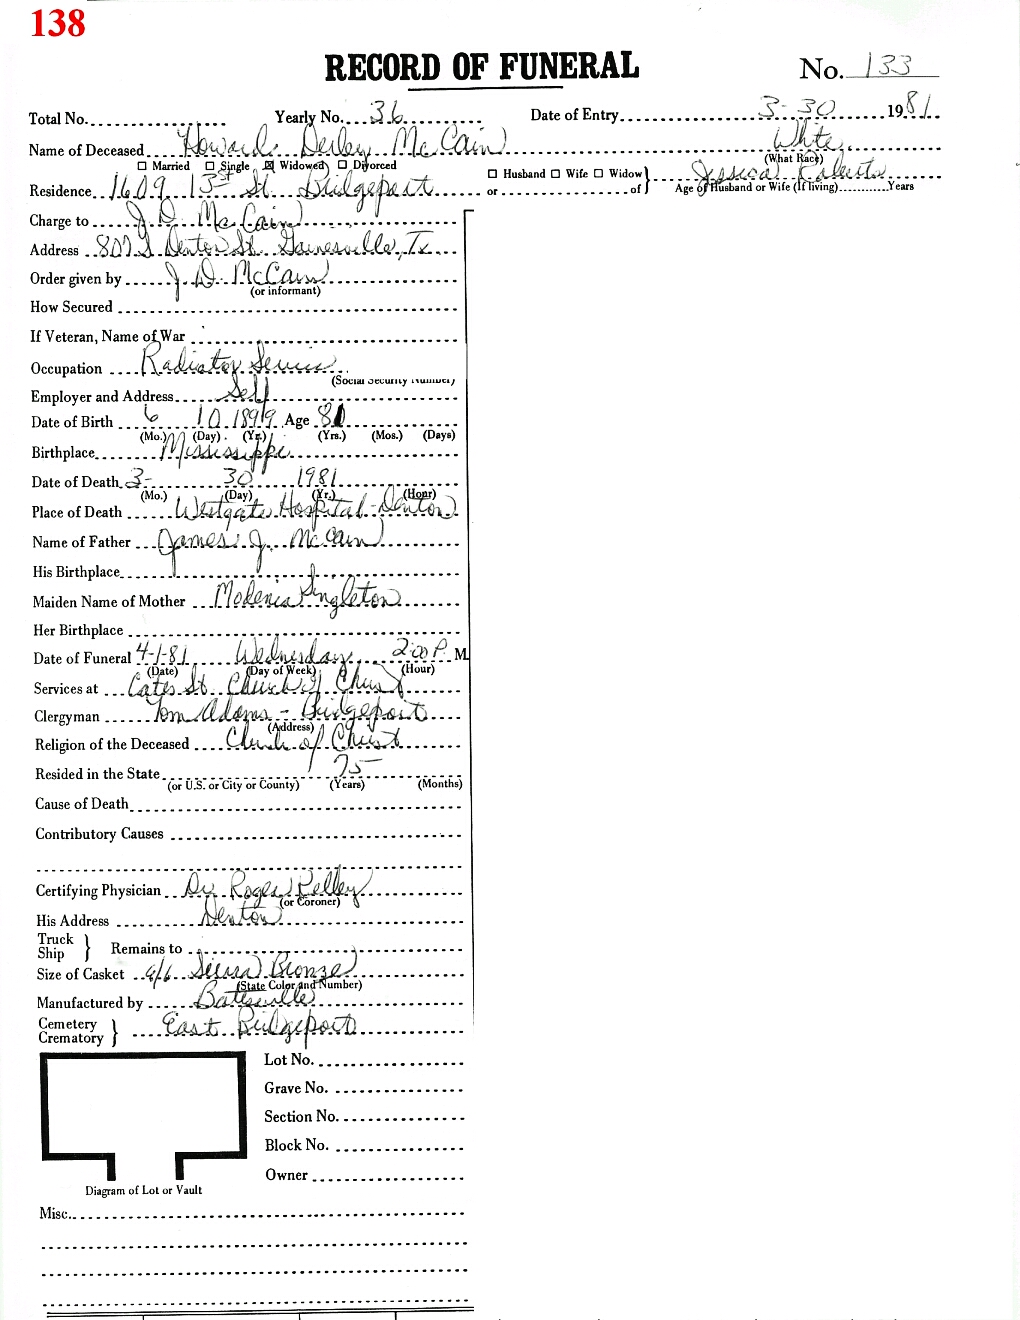 138
RECORD OF FUNERAL No. 133
Total No. Yearly No. 36 Date of Entry 3-30 1981
Name of Deceased Howard Desley McCain White
☐ Married ☐ Single ☒ Widowed ☐ Divorced (What Race)
Residence 1609 13th St. Bridgeport ☐ Husband ☐ Wife ☐ Widow or of } Jessica Roberta Age of Husband or Wife (If living) Years
Charge to J. D. McCain
Address 807 S. Denton St. Gainesville, Tx
Order given by J. D. McCain
(or informant)
How Secured
If Veteran, Name of War
Occupation Radiator Service
(Social Security Number)
Employer and Address Self
Date of Birth 6 10 1899 Age 81
(Mo.) (Day) (Yr.) (Yrs.) (Mos.) (Days)
Birthplace Mississippi
Date of Death 3- 30 1981
(Mo.) (Day) (Yr.) (Hour)
Place of Death Westgate Hospital-Denton
Name of Father James J. McCain
His Birthplace
Maiden Name of Mother Modenia Singleton
Her Birthplace
Date of Funeral 4-1-81 Wednesday 2:00 P. M.
(Date) (Day of Week) (Hour)
Services at Cates St. Church of Christ
Clergyman Tom Adams - Bridgeport
(Address)
Religion of the Deceased Church of Christ
Resided in the State 75
(or U.S. or City or County) (Years) (Months)
Cause of Death
Contributory Causes
Certifying Physician Dr. Roger Kelley
(or Coroner)
His Address Denton
Truck Ship } Remains to
Size of Casket 6/6 Sierra Bronze
(State Color and Number)
Manufactured by Batesville
Cemetery Crematory } East Bridgeport
Lot No.
Grave No.
Section No.
Block No.
Owner
Diagram of Lot or Vault
Misc.